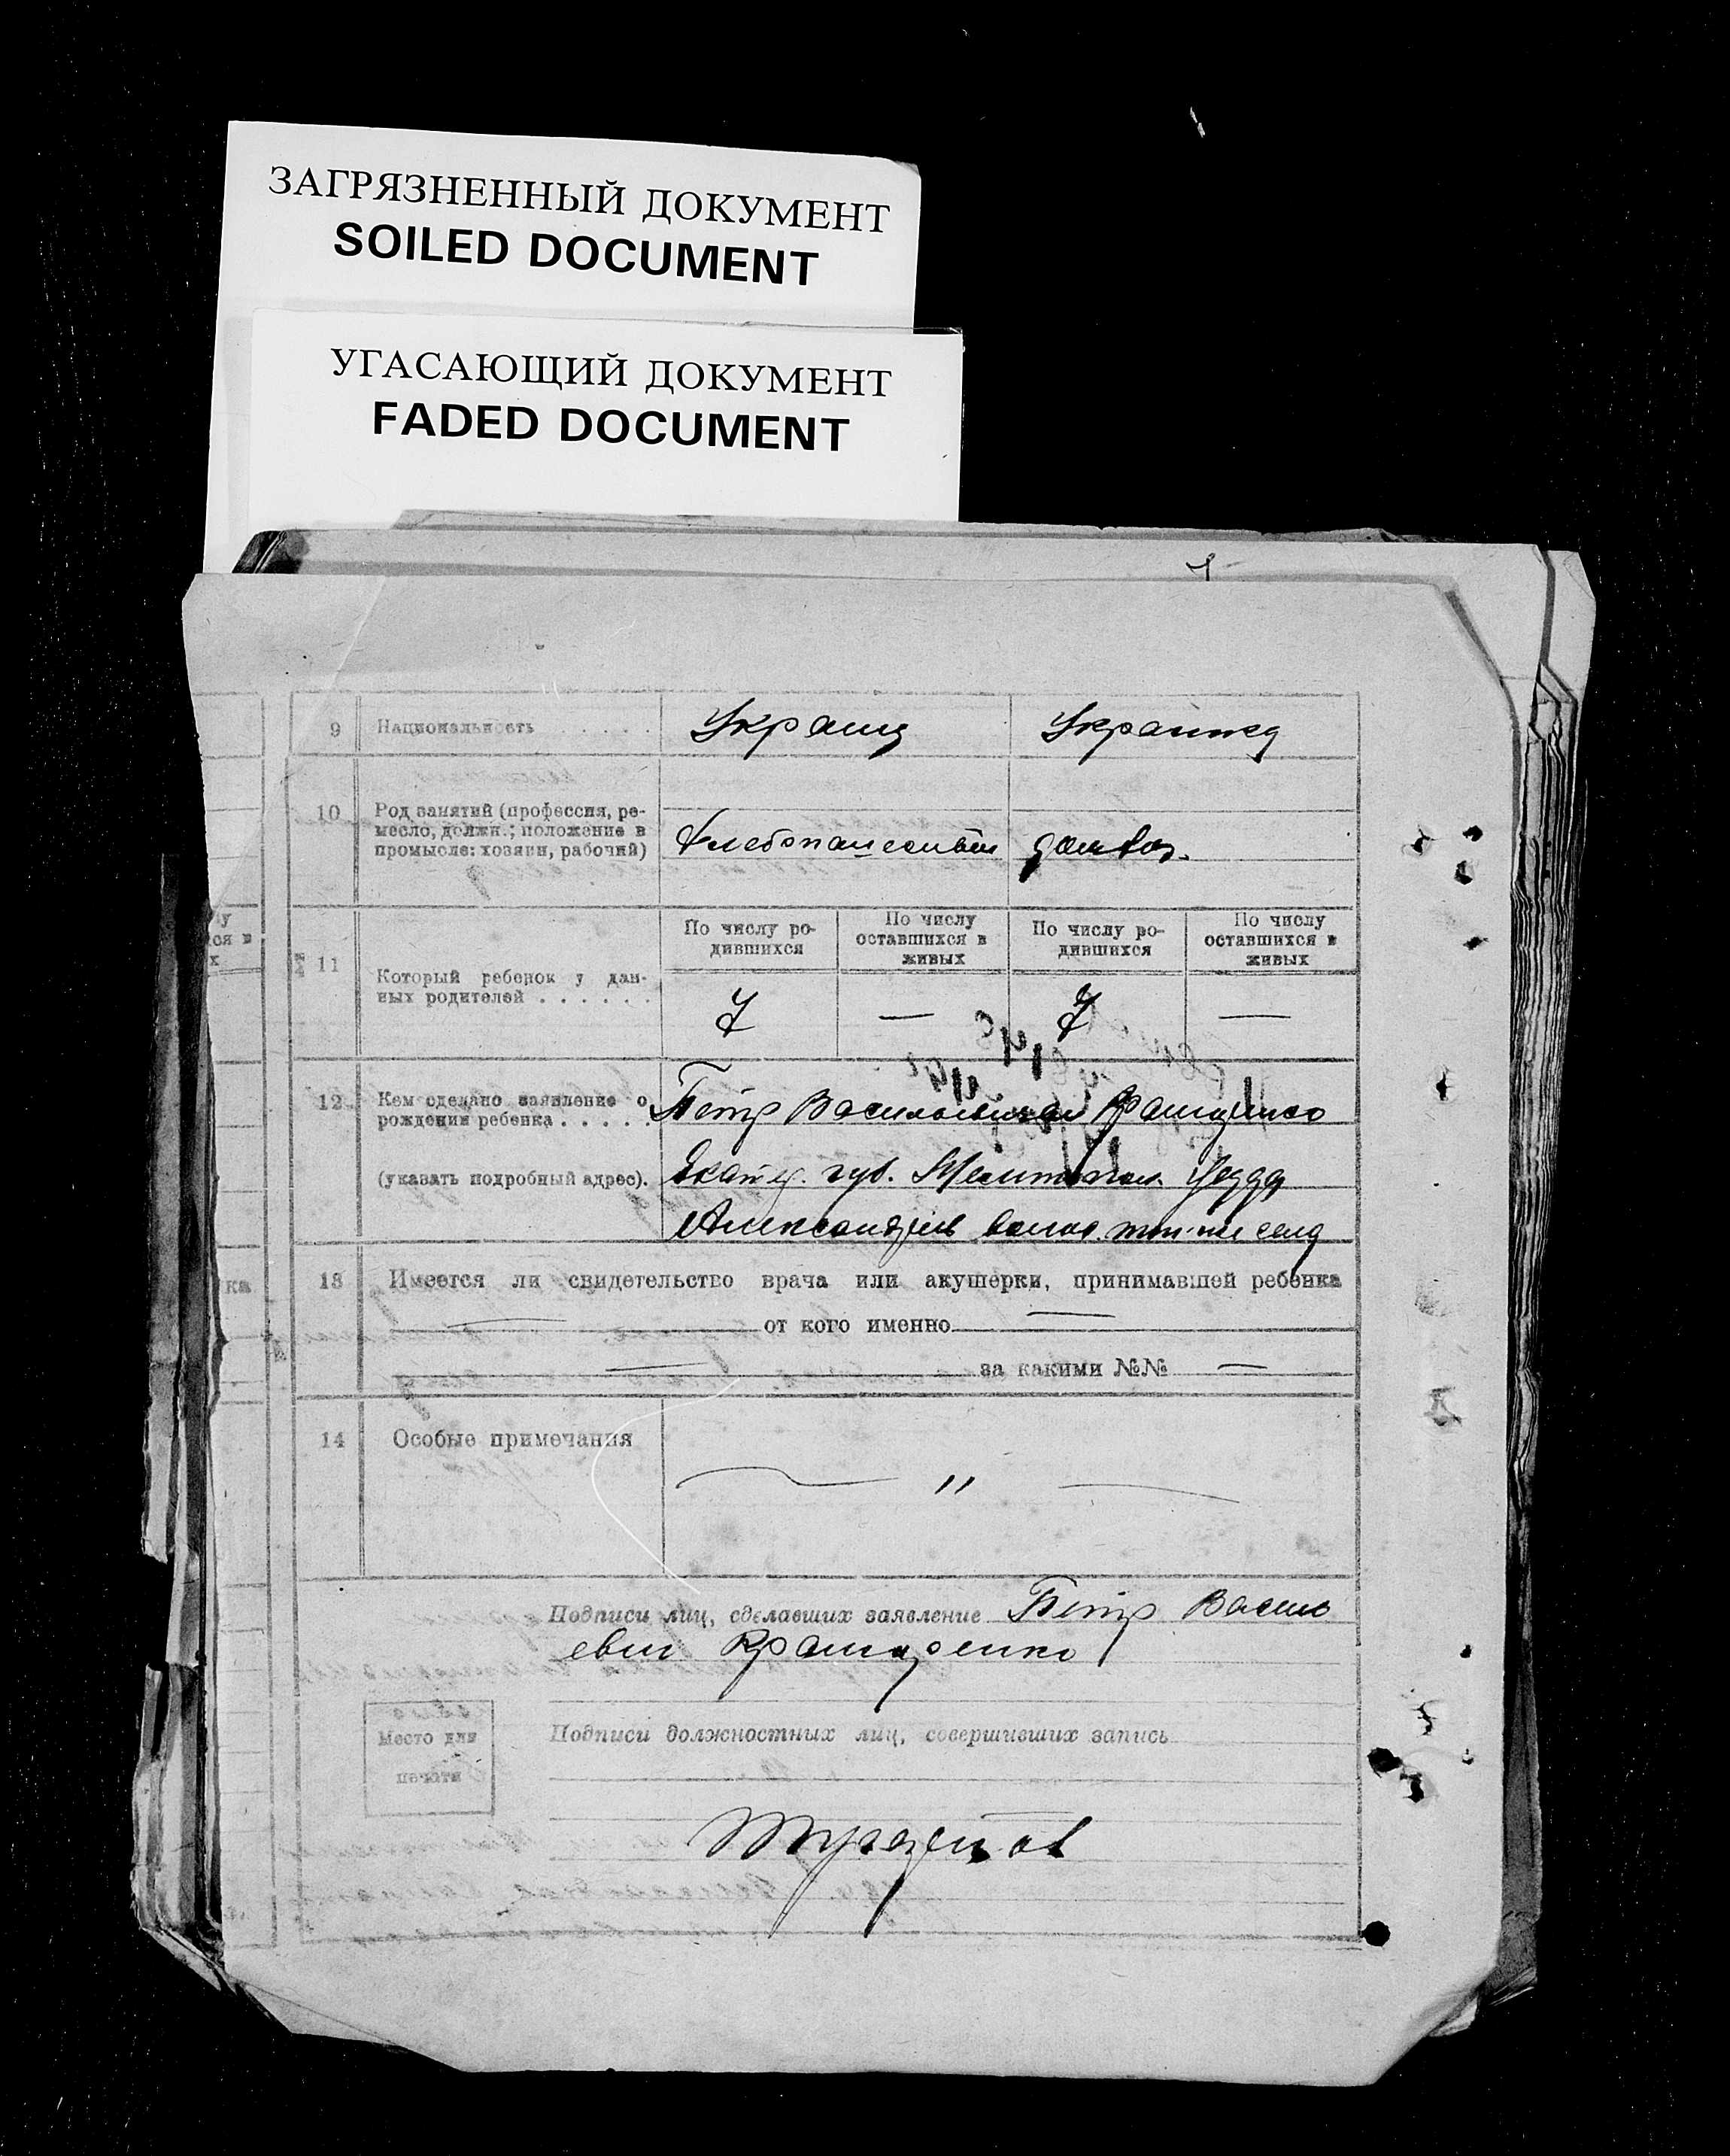 ЗАГРЯЗНЕННЫЙ ДОКУМЕНТ
SOILED DOCUMENT
УГАСАЮЩИЙ ДОКУМЕНТ
FADED DOCUMENT
9 Национальность . . . . Украиц Украинка
10 Род занятий (профессия, ре-
месло, должн.; положение в
промысле: хозяин, рабочий)
Хлебопашество домхоз.
11 Который ребенок у дан-
ных родителей . . . . . .
По числу ро-
дившихся
По числу
оставшихся в
живых
По числу ро-
дившихся
По числу
оставшихся в
живых
7 — 7 —
12 Кем сделано заявление о
рождении ребенка . . . . .
(указать подробный адрес).
Петр Васильевич
Екатер. губ. Мелитопол. уезда
Александров волос. села
13 Имеется ли свидетельство врача или акушерки, принимавшей ребенка
— от кого именно —
— за какими №№ —
14 Особые примечания
— " —
Подписи лиц, сделавших заявление Петр Василь
евич Крамаренко
Место для
печати
Подписи должностных лиц, совершивших запись